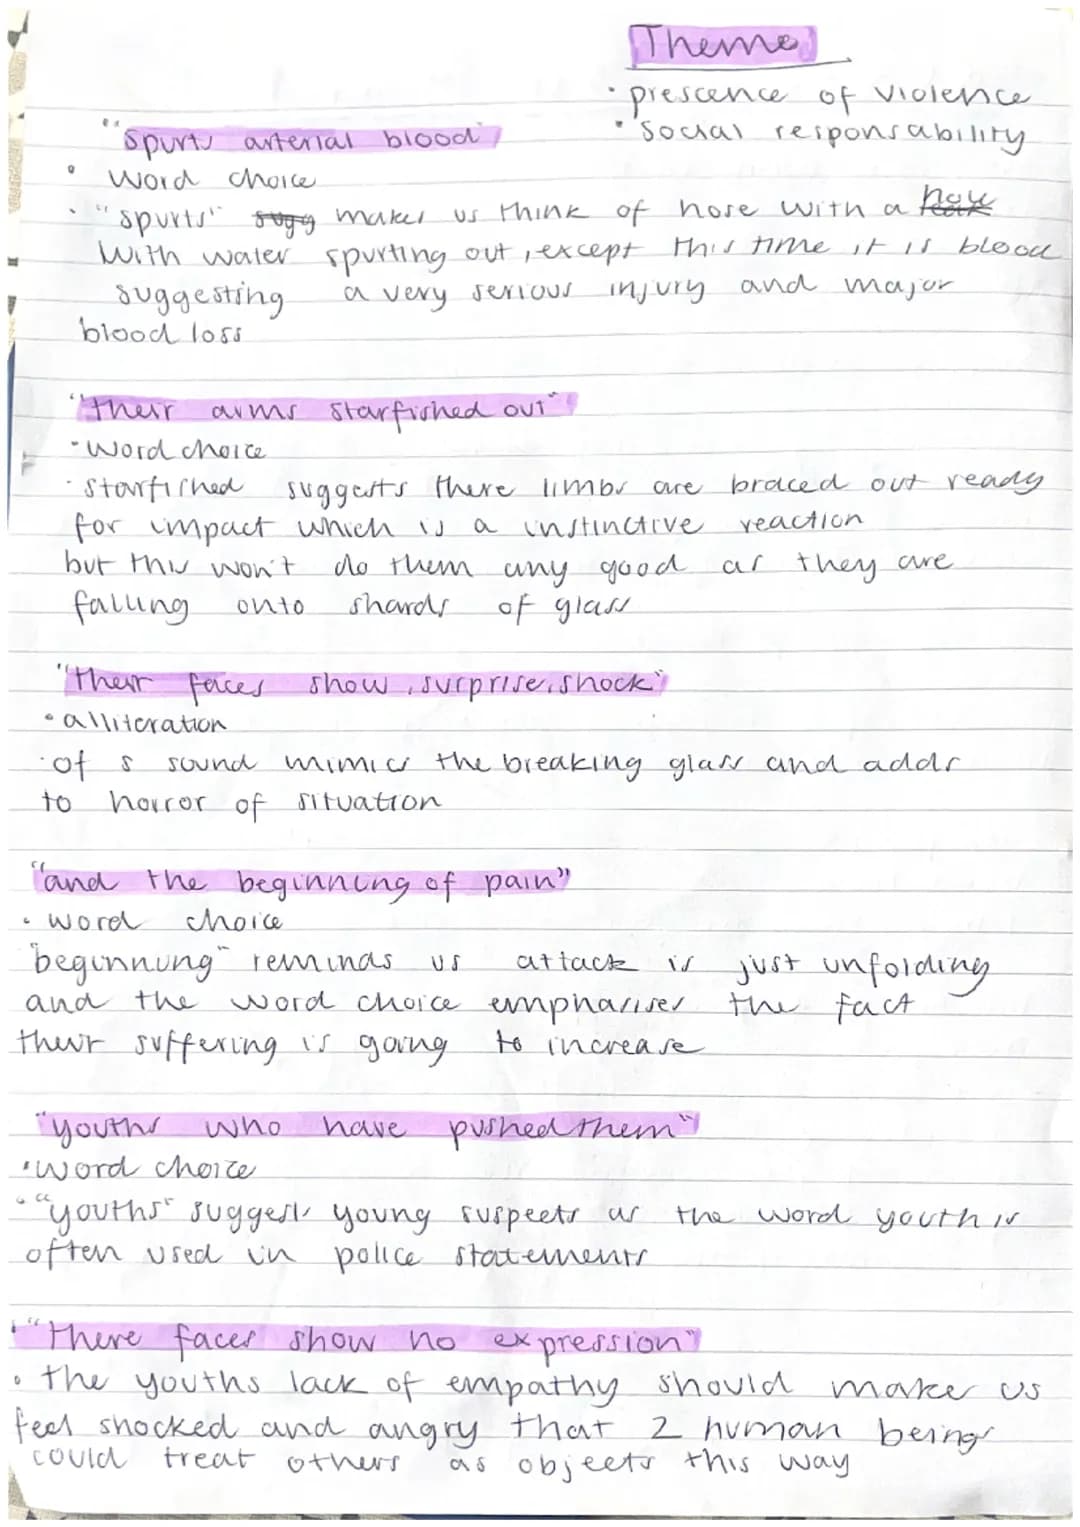 Theme
• prescence of violence
• Social responsability
"Spurts arterial blood"
• Word choice
• "spurts" makes us think of hose with a
With water spurting out, except this time it is blood
suggesting a very serious injury and major
blood loss
"their arms starfished out"
• Word choice
• Starfished suggests there limbs are braced out ready
for impact which is a instinctive reaction
but this won't do them any good as they are
falling onto shards of glass
"their faces show, surprise, shock"
• alliteration
• of s sound mimics the breaking glass and adds
to horror of situation
"and the beginning of pain"
• word choice
"beginning" reminds us attack is just unfolding
and the word choice emphasises the fact
their suffering is going to increase
"youths who have pushed them"
• Word choice
• "youths" suggests young suspects as the word youth is
often used in police statements
• "There faces show no expression"
• the youths lack of empathy should make us
feel shocked and angry that 2 human beings
could treat others as objects this way